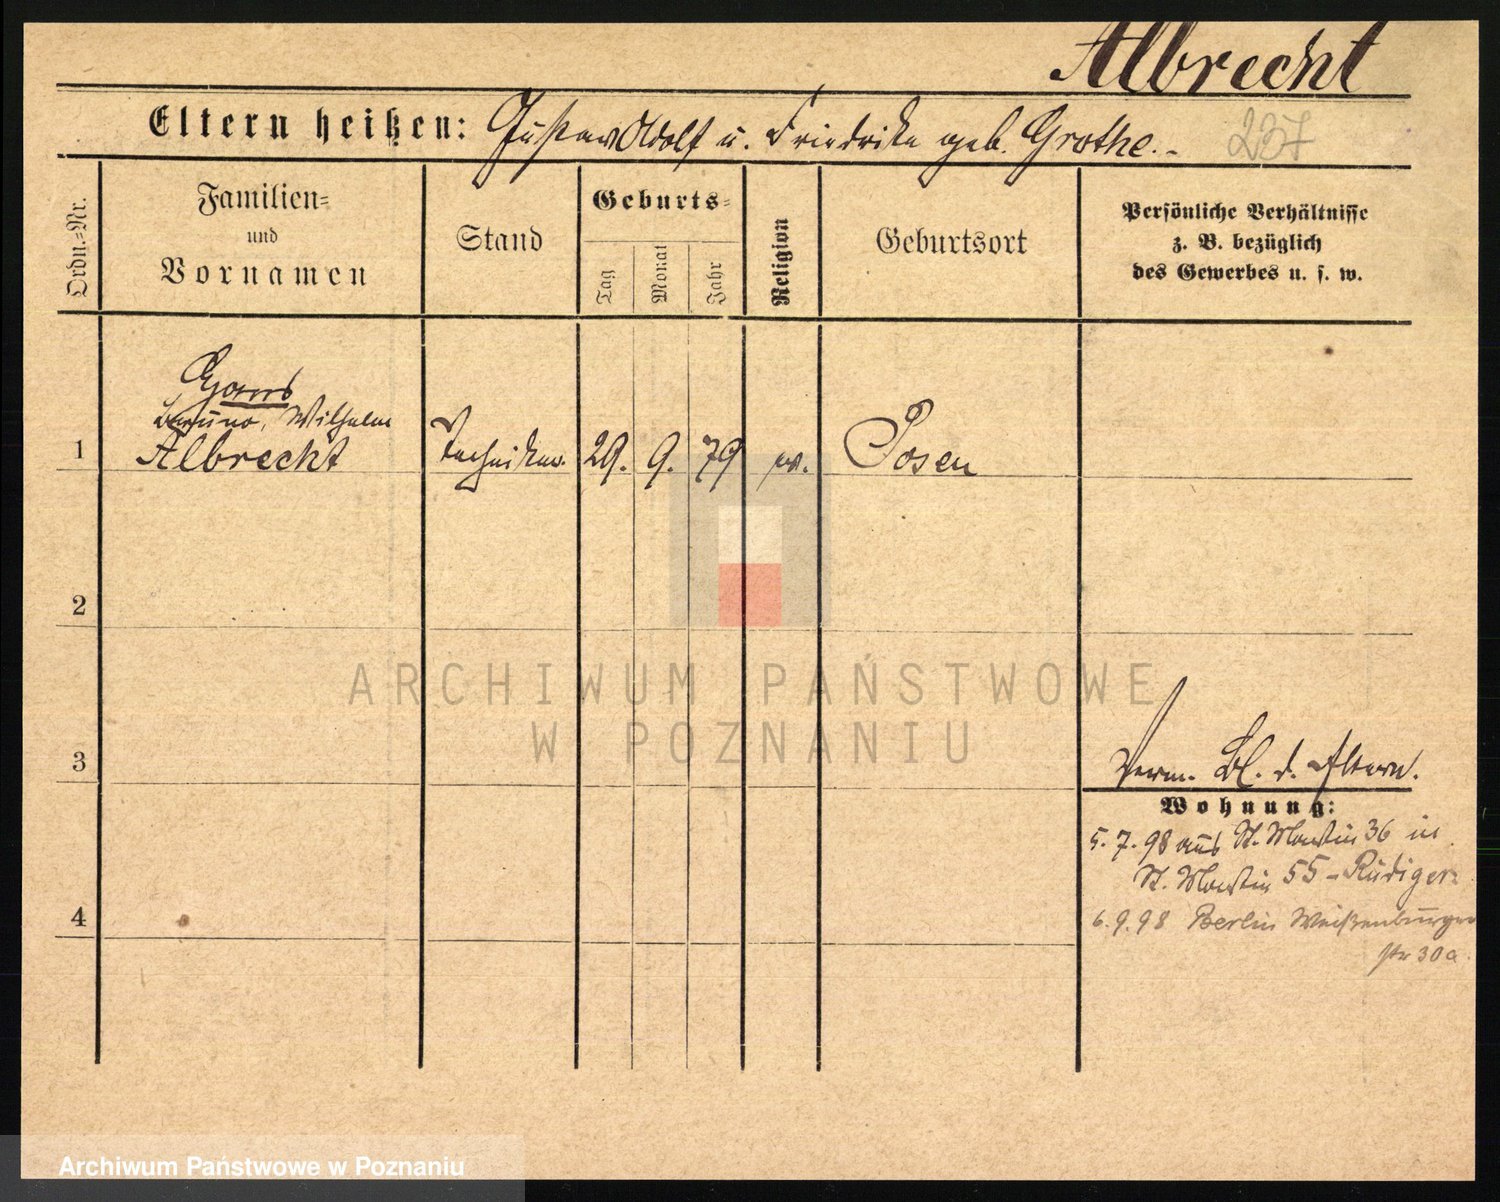 Albrecht
Eltern heißen: Gustav Adolf u. Friedrike geb. Grothe.
237
Ordn.=Nr.
Familien=
und
Vornamen
Stand
Geburts=
Tag
Monat
Jahr
Religion
Geburtsort
Persönliche Verhältnisse
z. B. bezüglich
des Gewerbes u. s. w.
Bruno, Wilhelm
1 Albrecht Techniker. 29. 9. 79 ev. Posen
2
ARCHIWUM PAŃSTWOWE
W POZNANIU
3
Bl. d. Eltern.
Wohnung:
5.7.98 aus St. Martin 36 in
St. Martin 55 - Rüdiger
4
6.9.98 Berlin Weißenburger
str 30a.
Archiwum Państwowe w Poznaniu